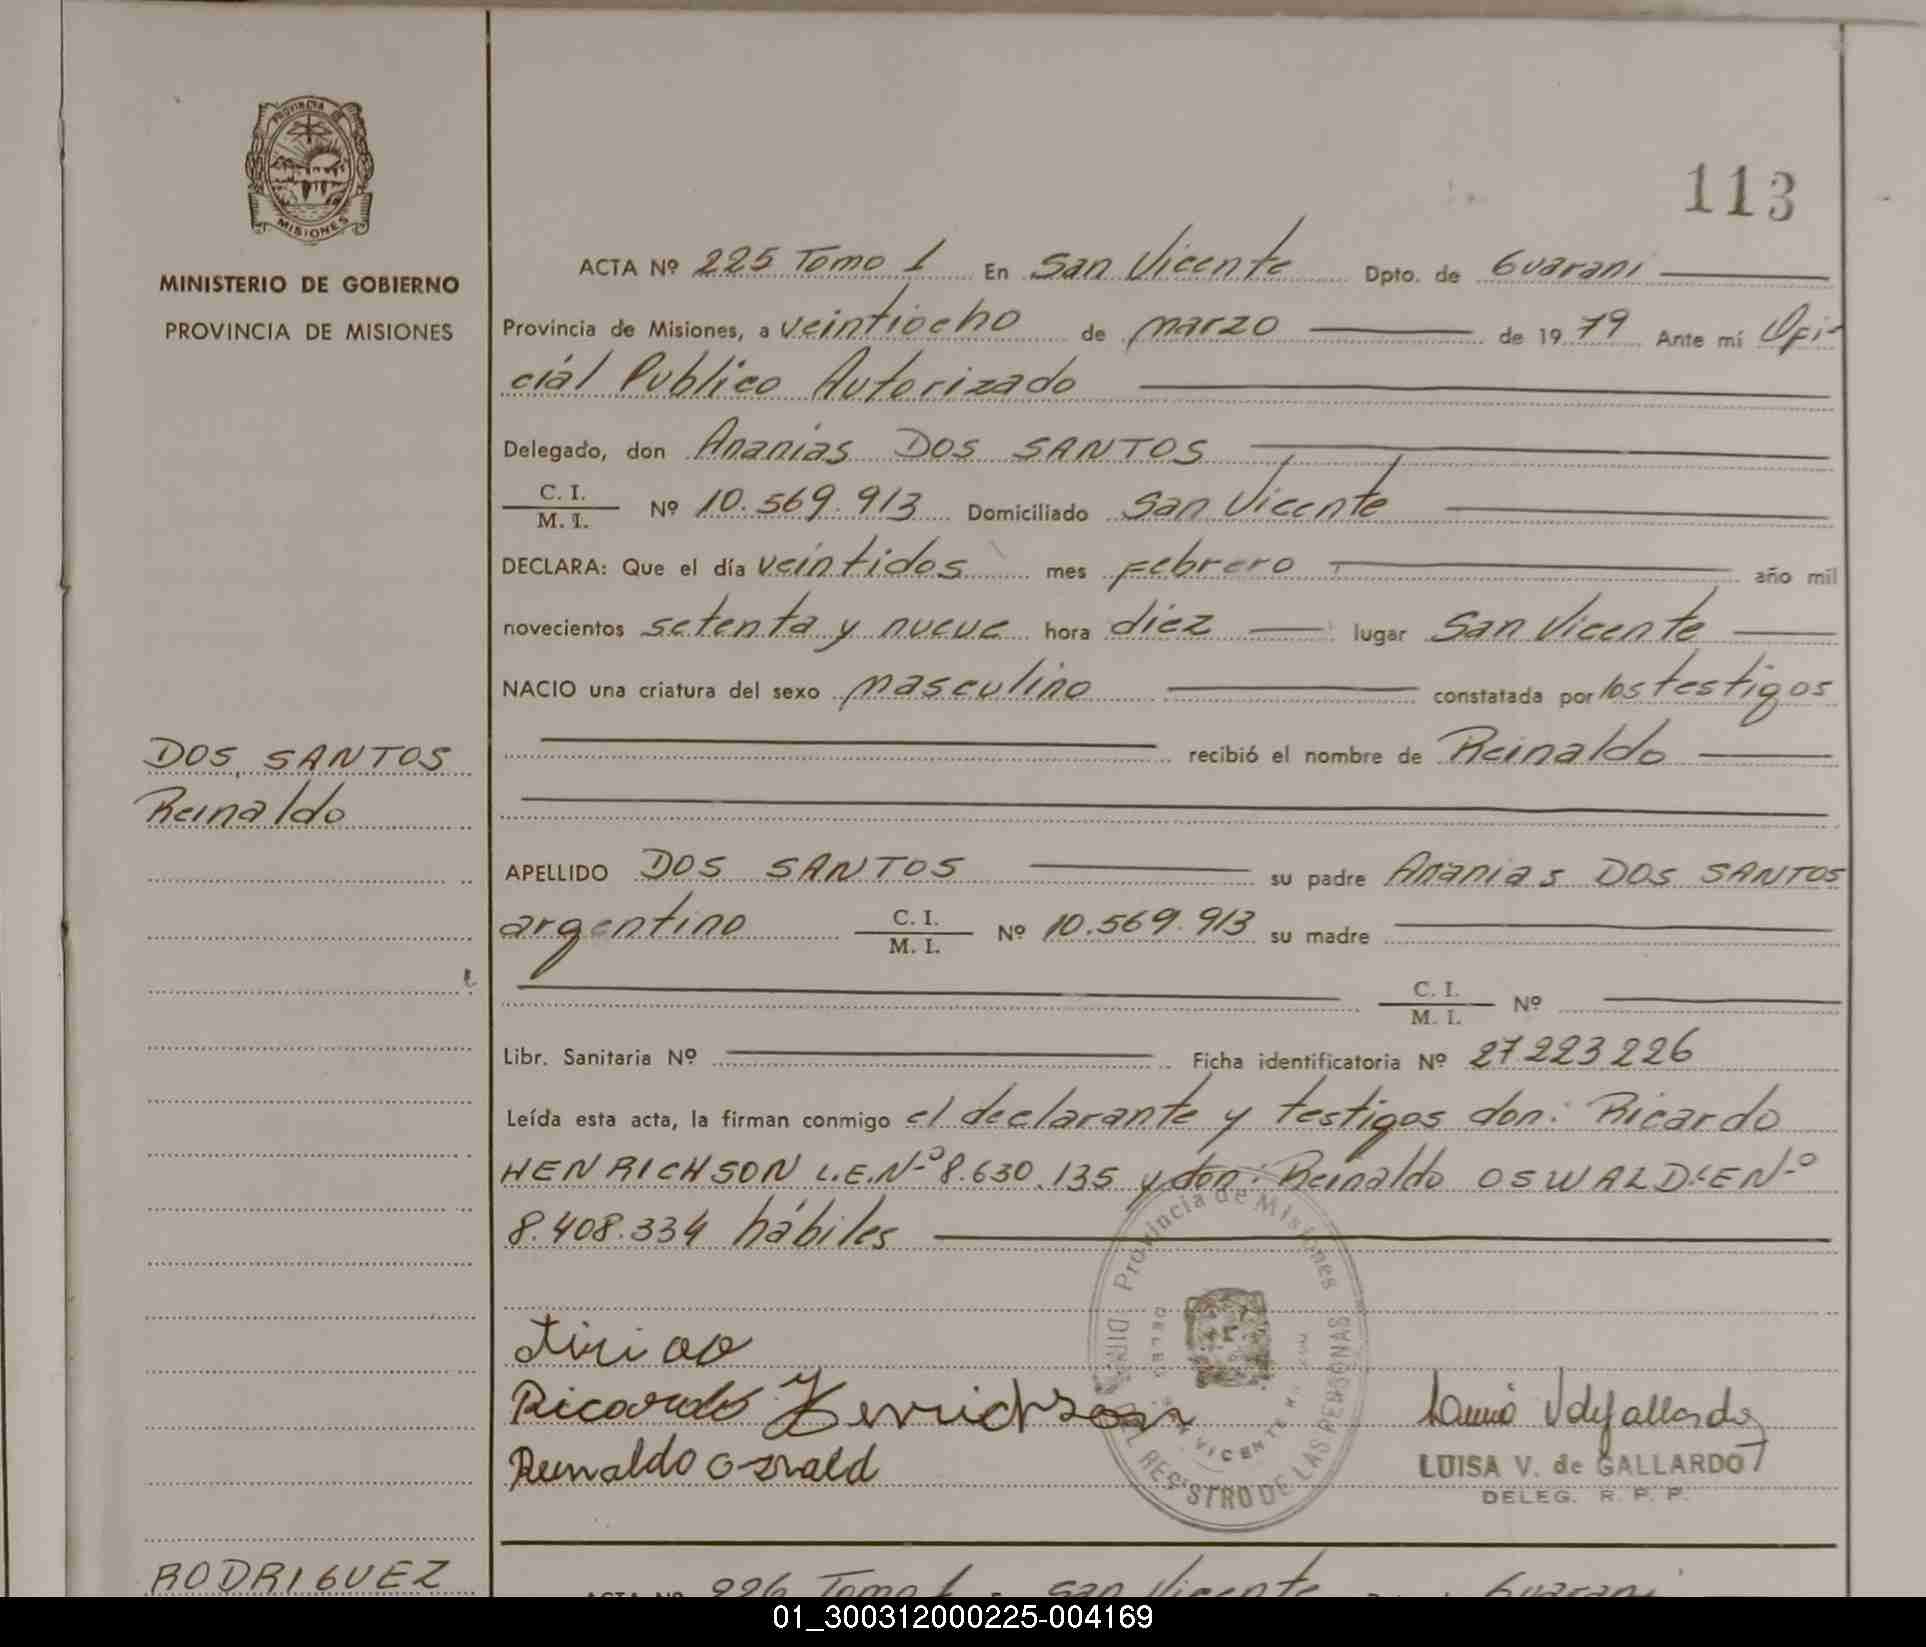 PROVINCIA DE
MISIONES
MINISTERIO DE GOBIERNO
PROVINCIA DE MISIONES
113
ACTA Nº 225 Tomo 1 En San Vicente Dpto. de Guarani
Provincia de Misiones, a veintiocho de marzo de 1979 Ante mí Ofi-
cial Publico Autorizado
Delegado, don Ananias DOS SANTOS
C. I.
M. I. Nº 10.569.913 Domiciliado San Vicente
DECLARA: Que el día veintidos mes febrero año mil
novecientos setenta y nueve hora diez lugar San Vicente
NACIO una criatura del sexo masculino constatada por los testigos
recibió el nombre de Reinaldo
DOS SANTOS
Reinaldo
APELLIDO DOS SANTOS su padre Ananias DOS SANTOS
argentino C. I.
M. I. Nº 10.569.913 su madre
C. I.
M. I. Nº
Libr. Sanitaria Nº Ficha identificatoria Nº 27.223.226
Leída esta acta, la firman conmigo el declarante y testigos don: Ricardo
HENRICHSON L.E.Nº 8.630.135 y don: Reinaldo OSWALD L.E Nº
8.408.334 hábiles
Provincia de Misiones
DEL REGISTRO DE LAS PERSONAS
SAN VICENTE
Ricardo Henrichson
Reinaldo Oswald
LUISA V. de GALLARDO
DELEG. R. P. P.
RODRIGUEZ
ACTA Nº 226 Tomo 1 En San Vicente Guarani
01_300312000225-004169